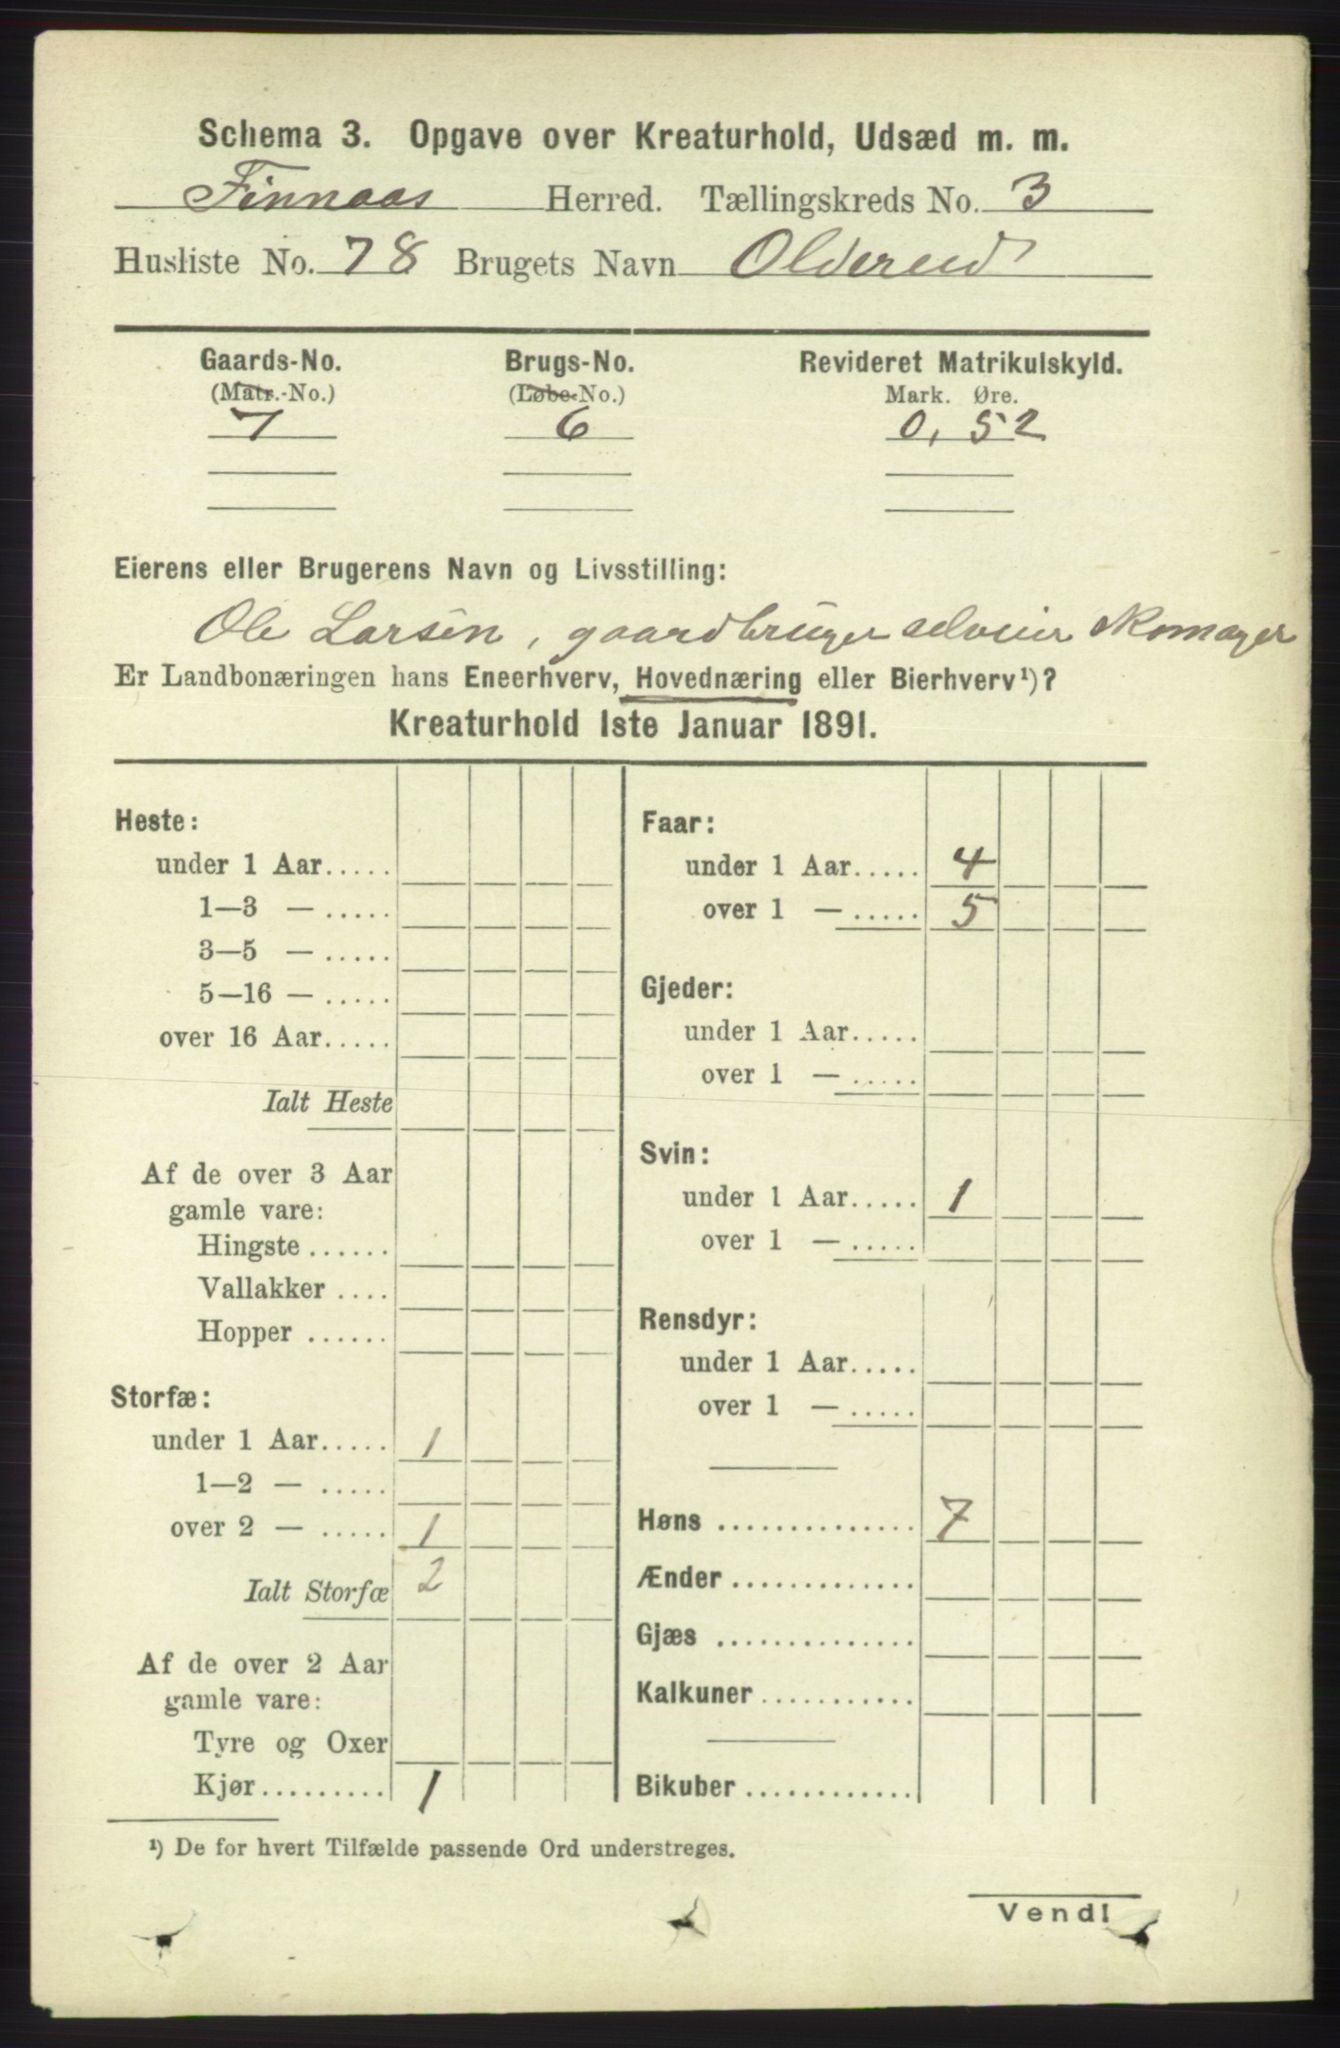 Schema 3. Opgave over Kreaturhold, Udsæd m. m.
Finnaas Herred. Tællingskreds No. 3
Husliste No. 78 Brugets Navn Oldereid
Gaards-No. Brugs-No. Revideret Matrikulskyld.
(Matr.-No.) (Løbe-No.) Mark. Øre.
7 6 0,52
Eierens eller Brugerens Navn og Livsstilling:
Ole Larsen, gaardbruger selveier skomager
Er Landbonæringen hans Eneerhverv, Hovednæring eller Bierhverv¹)?
Kreaturhold 1ste Januar 1891.
Heste:
under 1 Aar.....
1—3 — .....
3—5 — .....
5—16 — .....
over 16 Aar.....
Ialt Heste
Af de over 3 Aar
gamle vare:
Hingste ......
Vallakker ....
Hopper ......
Storfæ:
under 1 Aar..... 1
1—2 — .....
over 2 — ..... 1
Ialt Storfæ 2
Af de over 2 Aar
gamle vare:
Tyre og Oxer
Kjør......... 1
Faar:
under 1 Aar..... 4
over 1 — ..... 5
Gjeder:
under 1 Aar.....
over 1 — .....
Svin:
under 1 Aar..... 1
over 1 — .....
Rensdyr:
under 1 Aar.....
over 1 — .....
Høns .............. 7
Ænder .............
Gjæs ..............
Kalkuner...........
Bikuber ............
¹) De for hvert Tilfælde passende Ord understreges.
Vend!